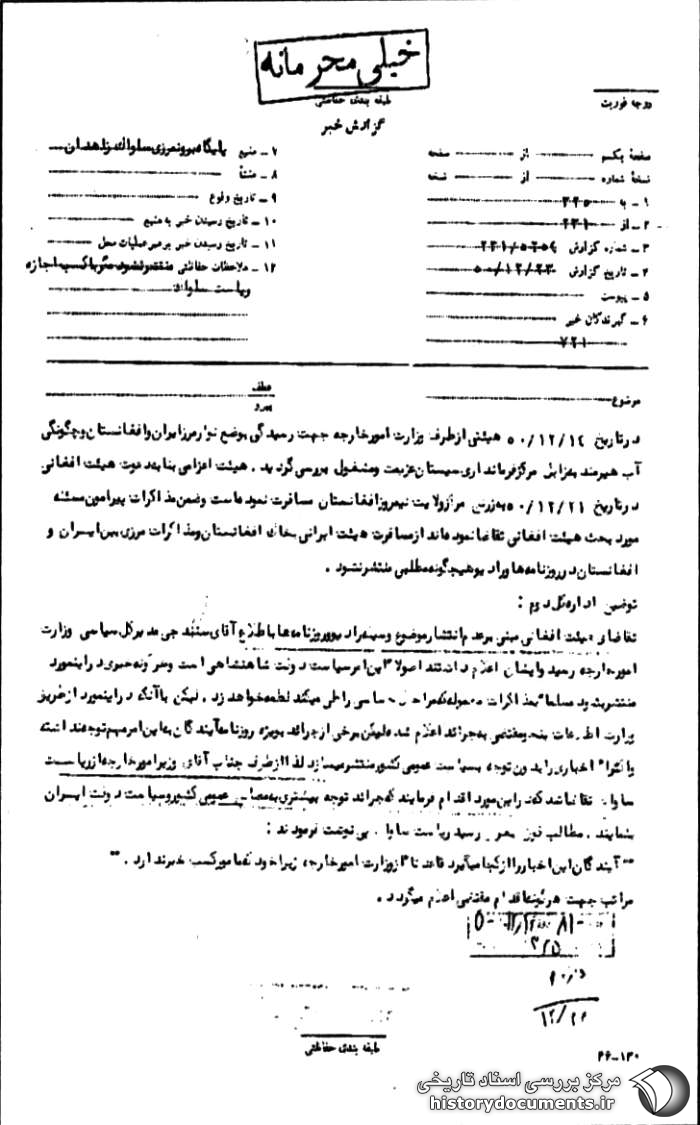 خیلی محرمانه
طبقه بندی حفاظتی
گزارش خبر
درجه فوریت
صفحهٔ یکم از صفحه
نسخهٔ شماره از نسخه
۱ - به ۳۳۵
۲ - از ۲۳۱
۳ - شماره گزارش
۴ - تاریخ گزارش ۵۰/۱۲/۲۳
۵ - پیوست
۶ - گیرندگان خبر
۷۲۱
۷ - منبع پایگاه برونمرزی ساواک زاهدان
۸ - منشأ
۹ - تاریخ وقوع
۱۰ - تاریخ رسیدن خبر به منبع
۱۱ - تاریخ رسیدن خبر برهبر عملیات محل
۱۲ - ملاحظات حفاظتی منتشر نشود مگر با کسب اجازه
ریاست ساواک
موضوع
عطف
پیرو
در تاریخ ۵۰/۱۲/۱۴ هیئتی از طرف وزارت امور خارجه جهت رسیدگی بوضع نوار مرز ایران و افغانستان و چگونگی
آب هیرمند به زابل مرکز فرمانداری سیستان عزیمت و مشغول بررسی گردید . هیئت اعزامی بنا بدعوت هیئت افغانی
در تاریخ ۵۰/۱۲/۲۱ به زرنج مرکز ولایت نیمروز افغانستان مسافرت نموده است و ضمن مذاکرات پیرامون مسئله
مورد بحث هیئت افغانی تقاضا نموده اند از مسافرت هیئت ایرانی بخاک افغانستان و مذاکرات مرزی بین ایران و
افغانستان در روزنامه ها و رادیو هیچگونه مطلبی منتشر نشود .
توضیح اداره کل دوم :
تقاضای هیئت افغانی مبنی بر عدم انتشار موضوع وسیله رادیو و روزنامه ها باطلاع آقای سنندجی مدیر کل سیاسی وزارت
امور خارجه رسید و ایشان اعلام داشتند اصولا این امر سیاست دولت شاهنشاهی است و هر گونه خبری در اینمورد
منتشر بشود مسلما بمذاکرات معموله که مراحل حساسی را طی میکند لطمه خواهد زد . لیکن با آنکه در اینمورد از طریق
وزارت اطلاعات بنحو مقتضی به جرائد اعلام شده لیکن برخی از جرائد بویژه روزنامه آیندگان به این امر مهم توجه نداشته
و اخباری را بدون توجه بسیاست عمومی کشور منتشر میسازد لذا از طرف جناب آقای وزیر امور خارجه از ریاست
ساواک تقاضا شد که در این مورد اقدام فرمایند که جرائد توجه بیشتری به مصالح عمومی کشور و سیاست دولت ایران
بنمایند . مطالب فوق بعرض رسید ریاست ساواک پی نوشت فرمودند :
" آیندگان این اخبار را از کجا میآورد قاعدتا از وزارت امور خارجه زیرا خود نما مور کسب خبر ندارد . "
مراتب جهت هر گونه اقدام مقتضی اعلام میگردد .
۱۲/۲۶
طبقه بندی حفاظتی
۴۶-۱۳۰
مرکز بررسی اسناد تاریخی
historydocuments.ir